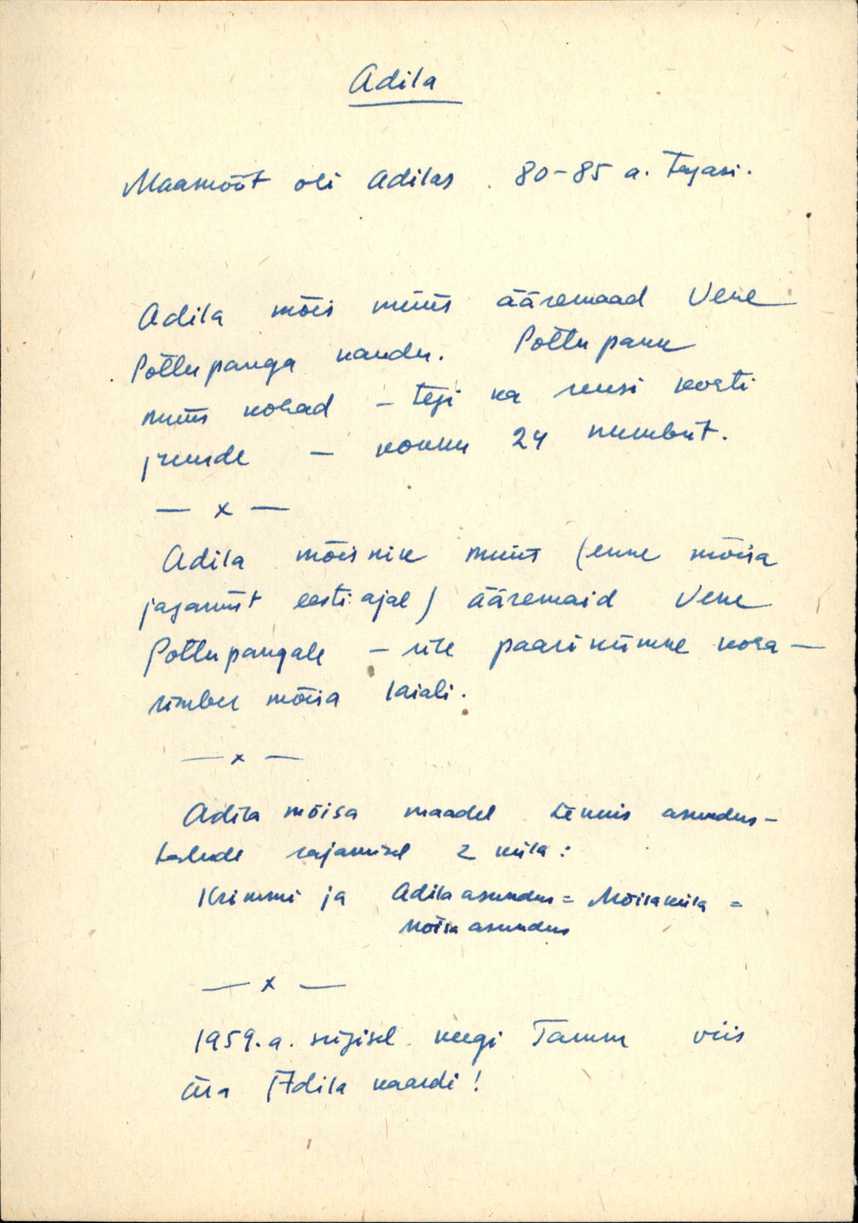 Adila
Maamõõt oli Adilas 80-85 a. tagasi.
Adila mõis müüs ääremaad Vene
Põllupanga kaudu. Põllupank
müüs kohad – tegi ka uusi kohti
juurde – kokku 24 numbrit.
— x —
Adila mõisnik müüs (enne mõisa
jagamist eesti ajal) ääremaid Vene
Põllupangale – üle paarikümne koha –
ümber mõisa laiali.
— x —
Adila mõisa maadel tekkis asundus-
talude rajamisel 2 küla:
Krimmi ja Adila asundus = Mõisaküla =
Mõisa asundus
— x —
1959. a. sügisel keegi Tamm viis
ära Adila kaardi!